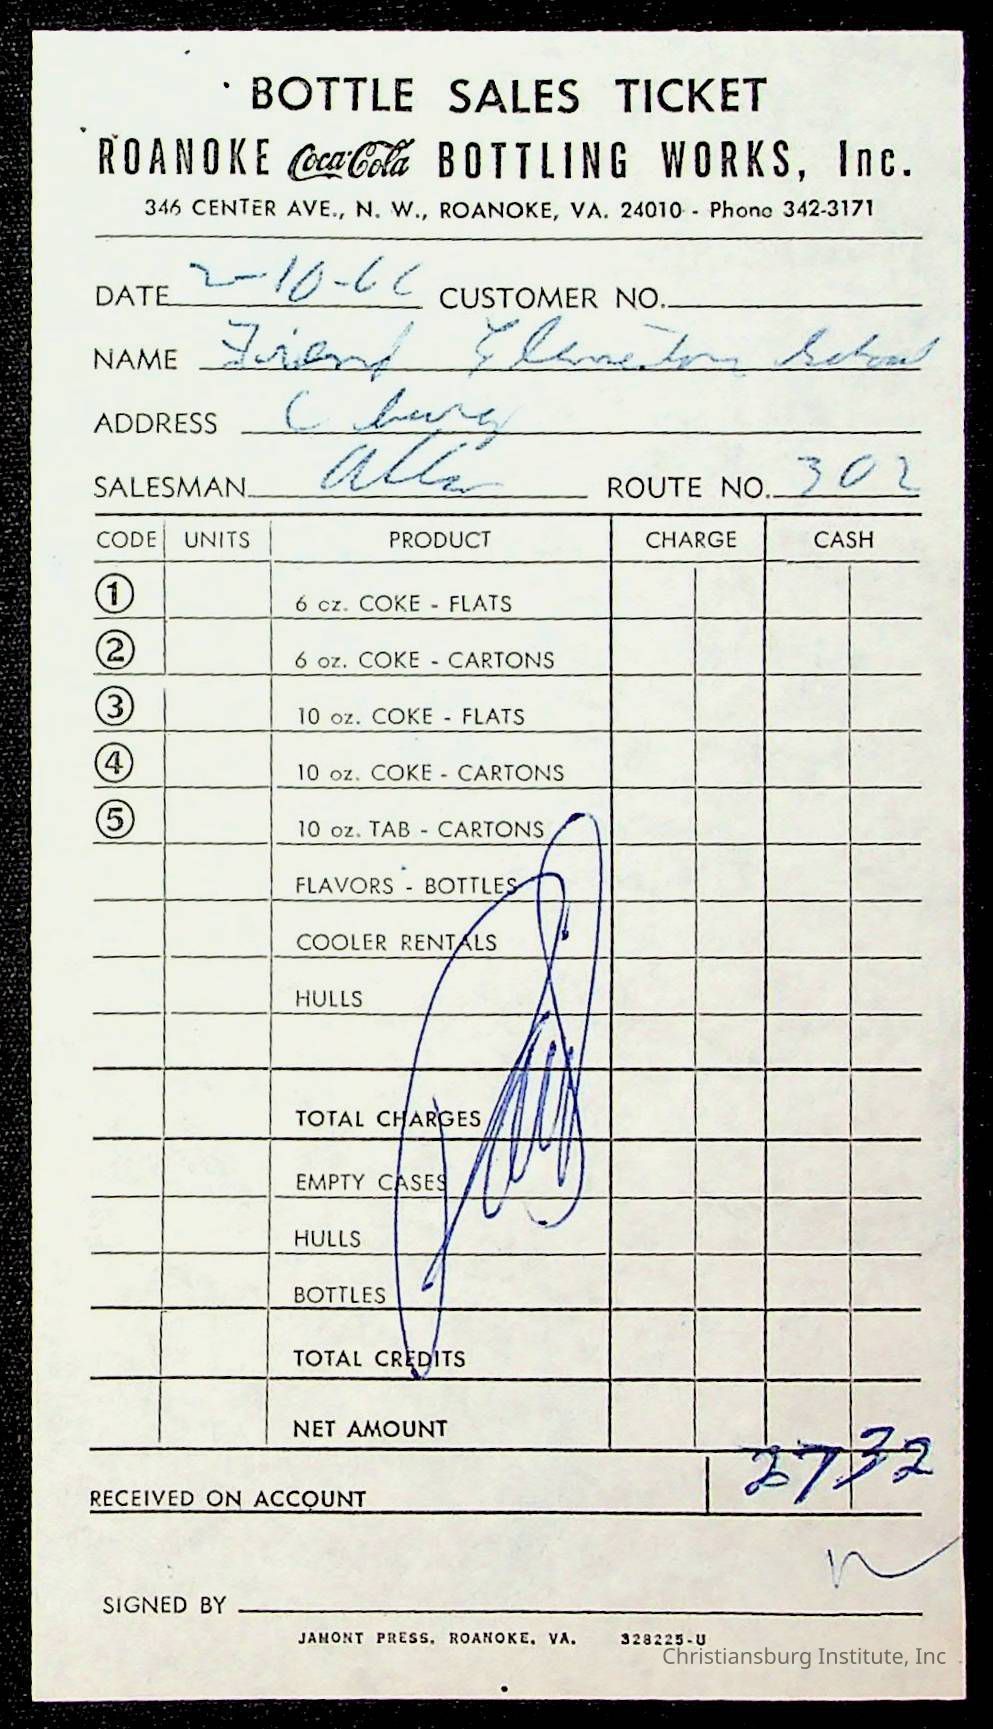 BOTTLE SALES TICKET
ROANOKE Coca-Cola BOTTLING WORKS, Inc.
346 CENTER AVE., N. W., ROANOKE, VA. 24010 - Phone 342-3171
DATE 2-10-66 CUSTOMER NO.
NAME Friend Elementary School
ADDRESS C burg
SALESMAN ROUTE NO. 302
CODE UNITS PRODUCT CHARGE CASH
1 6 oz. COKE - FLATS
2 6 oz. COKE - CARTONS
3 10 oz. COKE - FLATS
4 10 oz. COKE - CARTONS
5 10 oz. TAB - CARTONS
FLAVORS - BOTTLES
COOLER RENTALS
HULLS
TOTAL CHARGES
EMPTY CASES
HULLS
BOTTLES
TOTAL CREDITS
NET AMOUNT
RECEIVED ON ACCOUNT 27 32
SIGNED BY
JAMONT PRESS, ROANOKE, VA. 328225-U
Christiansburg Institute, Inc